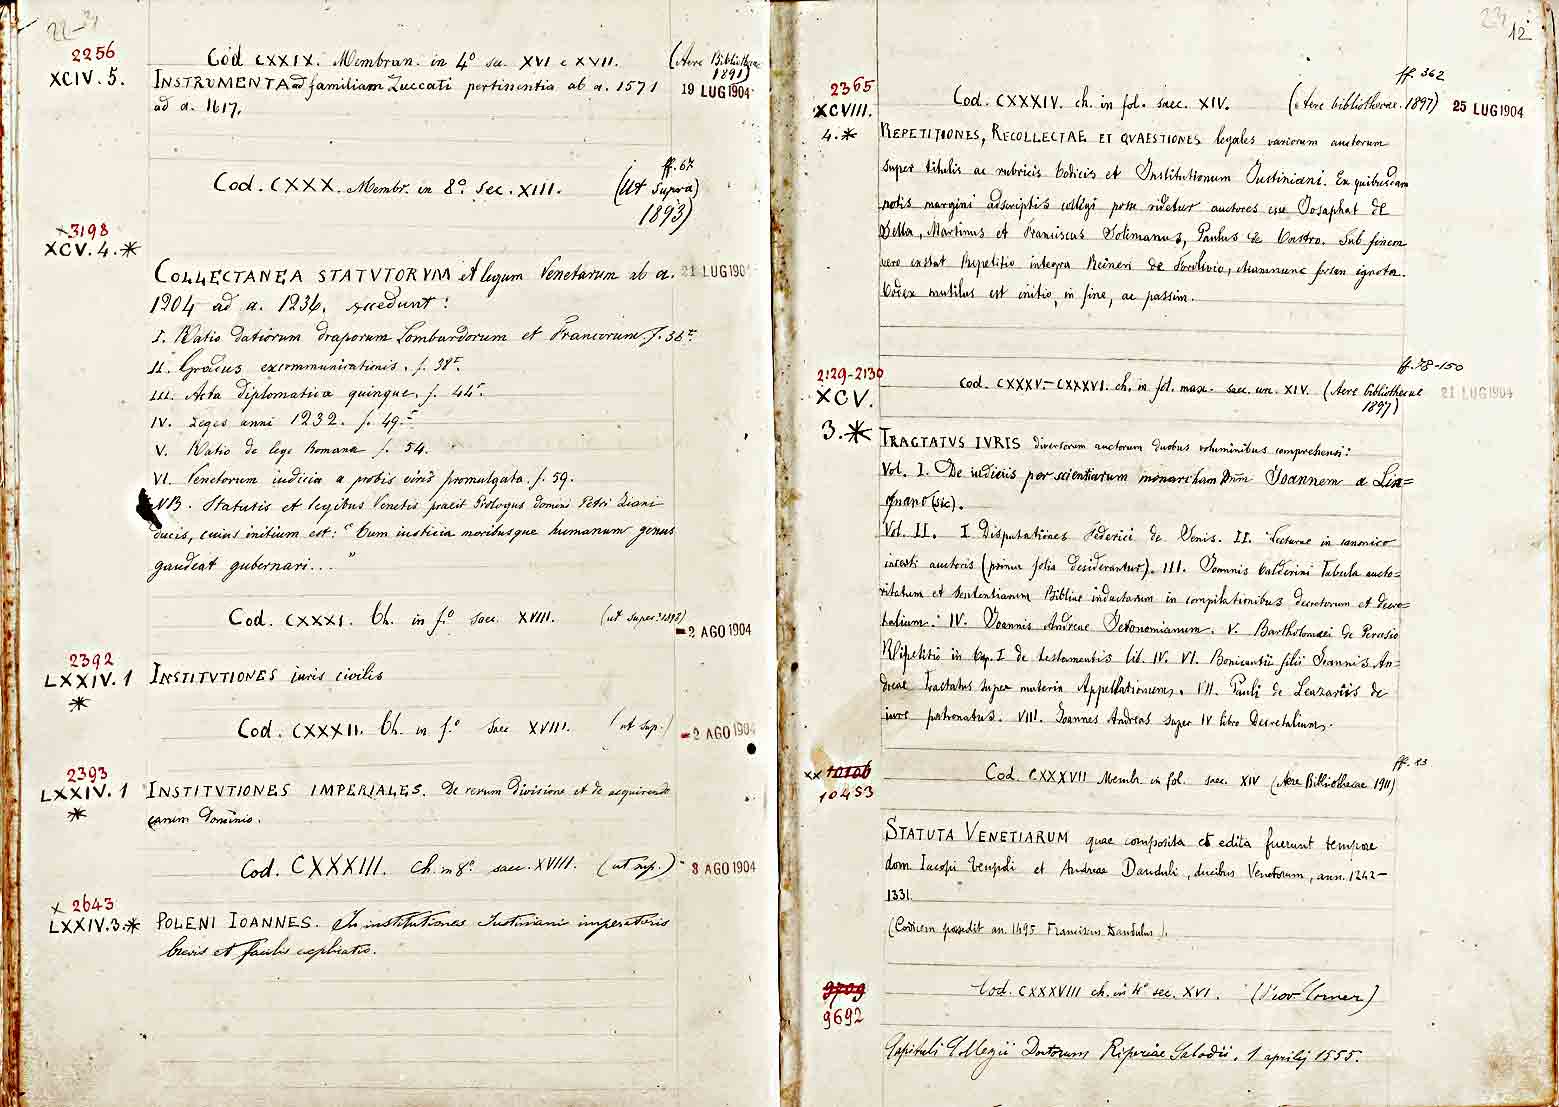 22
2256
XCIV. 5.
Cod CXXIX. Membran. in 4º sec. XVI e XVII.
(Aere Bibliothecae
1891)
INSTRUMENTA ad familiam Zuccati pertinentia ab a. 1571
19 LUG 1904
ad a. 1617.
Cod. CXXX. Membr. in 8º. sec. XIII.
ff. 67
(Ut supra)
1893)
x 3198
XCV. 4. *
COLLECTANEA STATVTORVM et legum Venetarum ab a.
21 LUG 190
1204 ad a. 1236. Accedunt:
I. Ratio datiorum draporum Lombardorum et Francorum. f. 36r.
II. Gradus excommunicationis. f. 38r.
III. Acta diplomatica quinque. f. 44r.
IV. Leges anni 1232. f. 49r
V. Ratio de lege Romana f. 54.
VI. Venetorum iudicia a probis promulgata. f. 59.
NB. Statutis et legibus Venetis praeit Prologus domini Petri Ziani
ducis, cuius initium est: "Cum iusticia moribusque humanum genus
gaudeat gubernari... "
Cod. CXXXI. Ch. in fº. saec. XVIII.
2 AGO 1904
2392
LXXIV. 1
*
INSTITVTIONES iuris civilis
Cod. CXXXII. Ch. in fº. saec XVIII. (ut sup.)
2 AGO 1904
2393
LXXIV. 1
*
INSTITVTIONES IMPERIALES. De rerum divisione et de acquirendo
earum dominio.
Cod. CXXXIII. Ch. in 8º. saec. XVIII. (ut sup.)
3 AGO 1904
x 2643
LXXIV. 3. *
POLENI IOANNES. In institutiones Iustiniani imperatoris
brevis et facilis explicatio.
23
12
2365
XCVIII.
4. *
ff. 362
Cod. CXXXIV. ch. in fol. saec. XIV. (Aere bibliothecae. 1897)
25 LUG 1904
REPETITIONES, RECOLLECTAE ET QVAESTIONES legales variorum auctorum
super titulis ac rubricis Codicis et Institutionum Justiniani. Ex quibusdam
notis margini adscriptis colligi posse videtur auctores esse Josaphat de
Zella, Martinus et Franciscus Solimanus, Paulus de Castro. Sub finem
vero extat Repetitio integra Raineri de Forolivio, etiamnunc forsan ignota.
Codex mutilus est initio, in fine, ac passim.
2129-2130
XCV.
3. *
ff. 78-150
Cod. CXXXV-CXXXVI. ch. in fol. max. saec. un. XIV. (Aere bibliothecae
1897)
21 LUG 1904
TRACTATVS IVRIS diversorum auctorum duobus voluminibus comprehensi:
Vol. I. De iudiciis per scientiarum monarcham Dnm Joannem a Lin=
gnano (sic).
Vol. II. I Disputationes Federici de Senis. II. Lecturae in canonico
incerti auctoris (prima folia desiderantur). III. Joannis Calderini Tabula aucto=
ritatum et sententiarum Bibliae inductarum in compilationibus decretorum et decre=
talium. IV. Joannis Andreae Jeronomianum. V. Bartholomaei de Perusio
Repetitio in Cap. I de testamentis lib. IV. VI. Bonicontii filii Joannis An=
dreae Tractatus super materia Appellationum. VII. Pauli de Leazariis de
iure patronatus. VIII. Joannes Andreas super IV libro Decretalium.
xx 10106
10453
ff. 83
Cod. CXXXVII Membr. in fol. saec. XIV (Aere Bibliothecae 1911)
STATUTA VENETIARUM quae composita et edita fuerunt tempore
dom. Iacopi Teupoli et Andreae Danduli, ducibus Venetorum, ann. 1242-
1331.
(Codicem possedit an. 1495 Franciscus Dandulus).
9709
9692
Cod. CXXXVIII ch. in 4º sec. XVI. (Prov. Corner)
Capituli Collegii Doctorum Riperiae Salodii, 1 aprilij 1555.